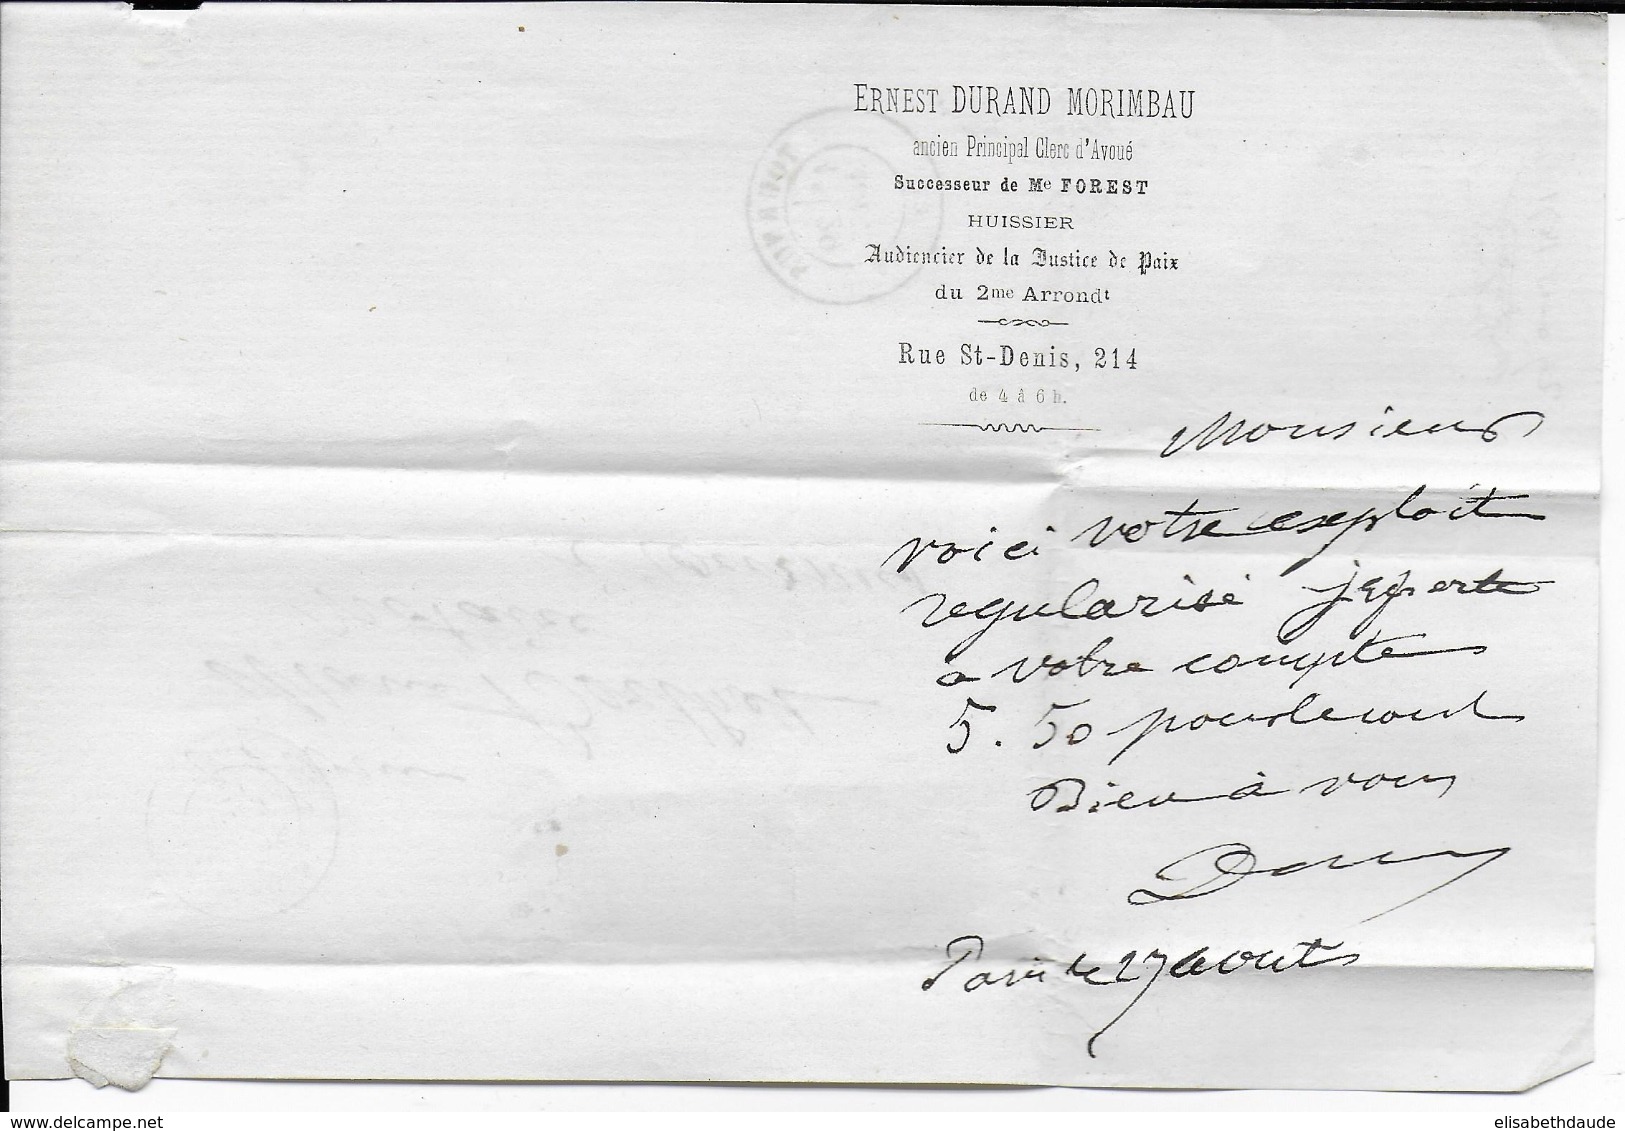 ERNEST DURAND MORIMBAU
ancien Principal Clerc d'Avoué
Successeur de Me FOREST
HUISSIER
Audiencier de la Justice de Paix
du 2me Arrondt
Rue St-Denis, 214
de 4 à 6 h.
Monsieur
voici votre exploit
regularisé je porte
a votre compte
5.50 pour le cout
Bien à vous
Paris le 27 aout
elisabethdaude